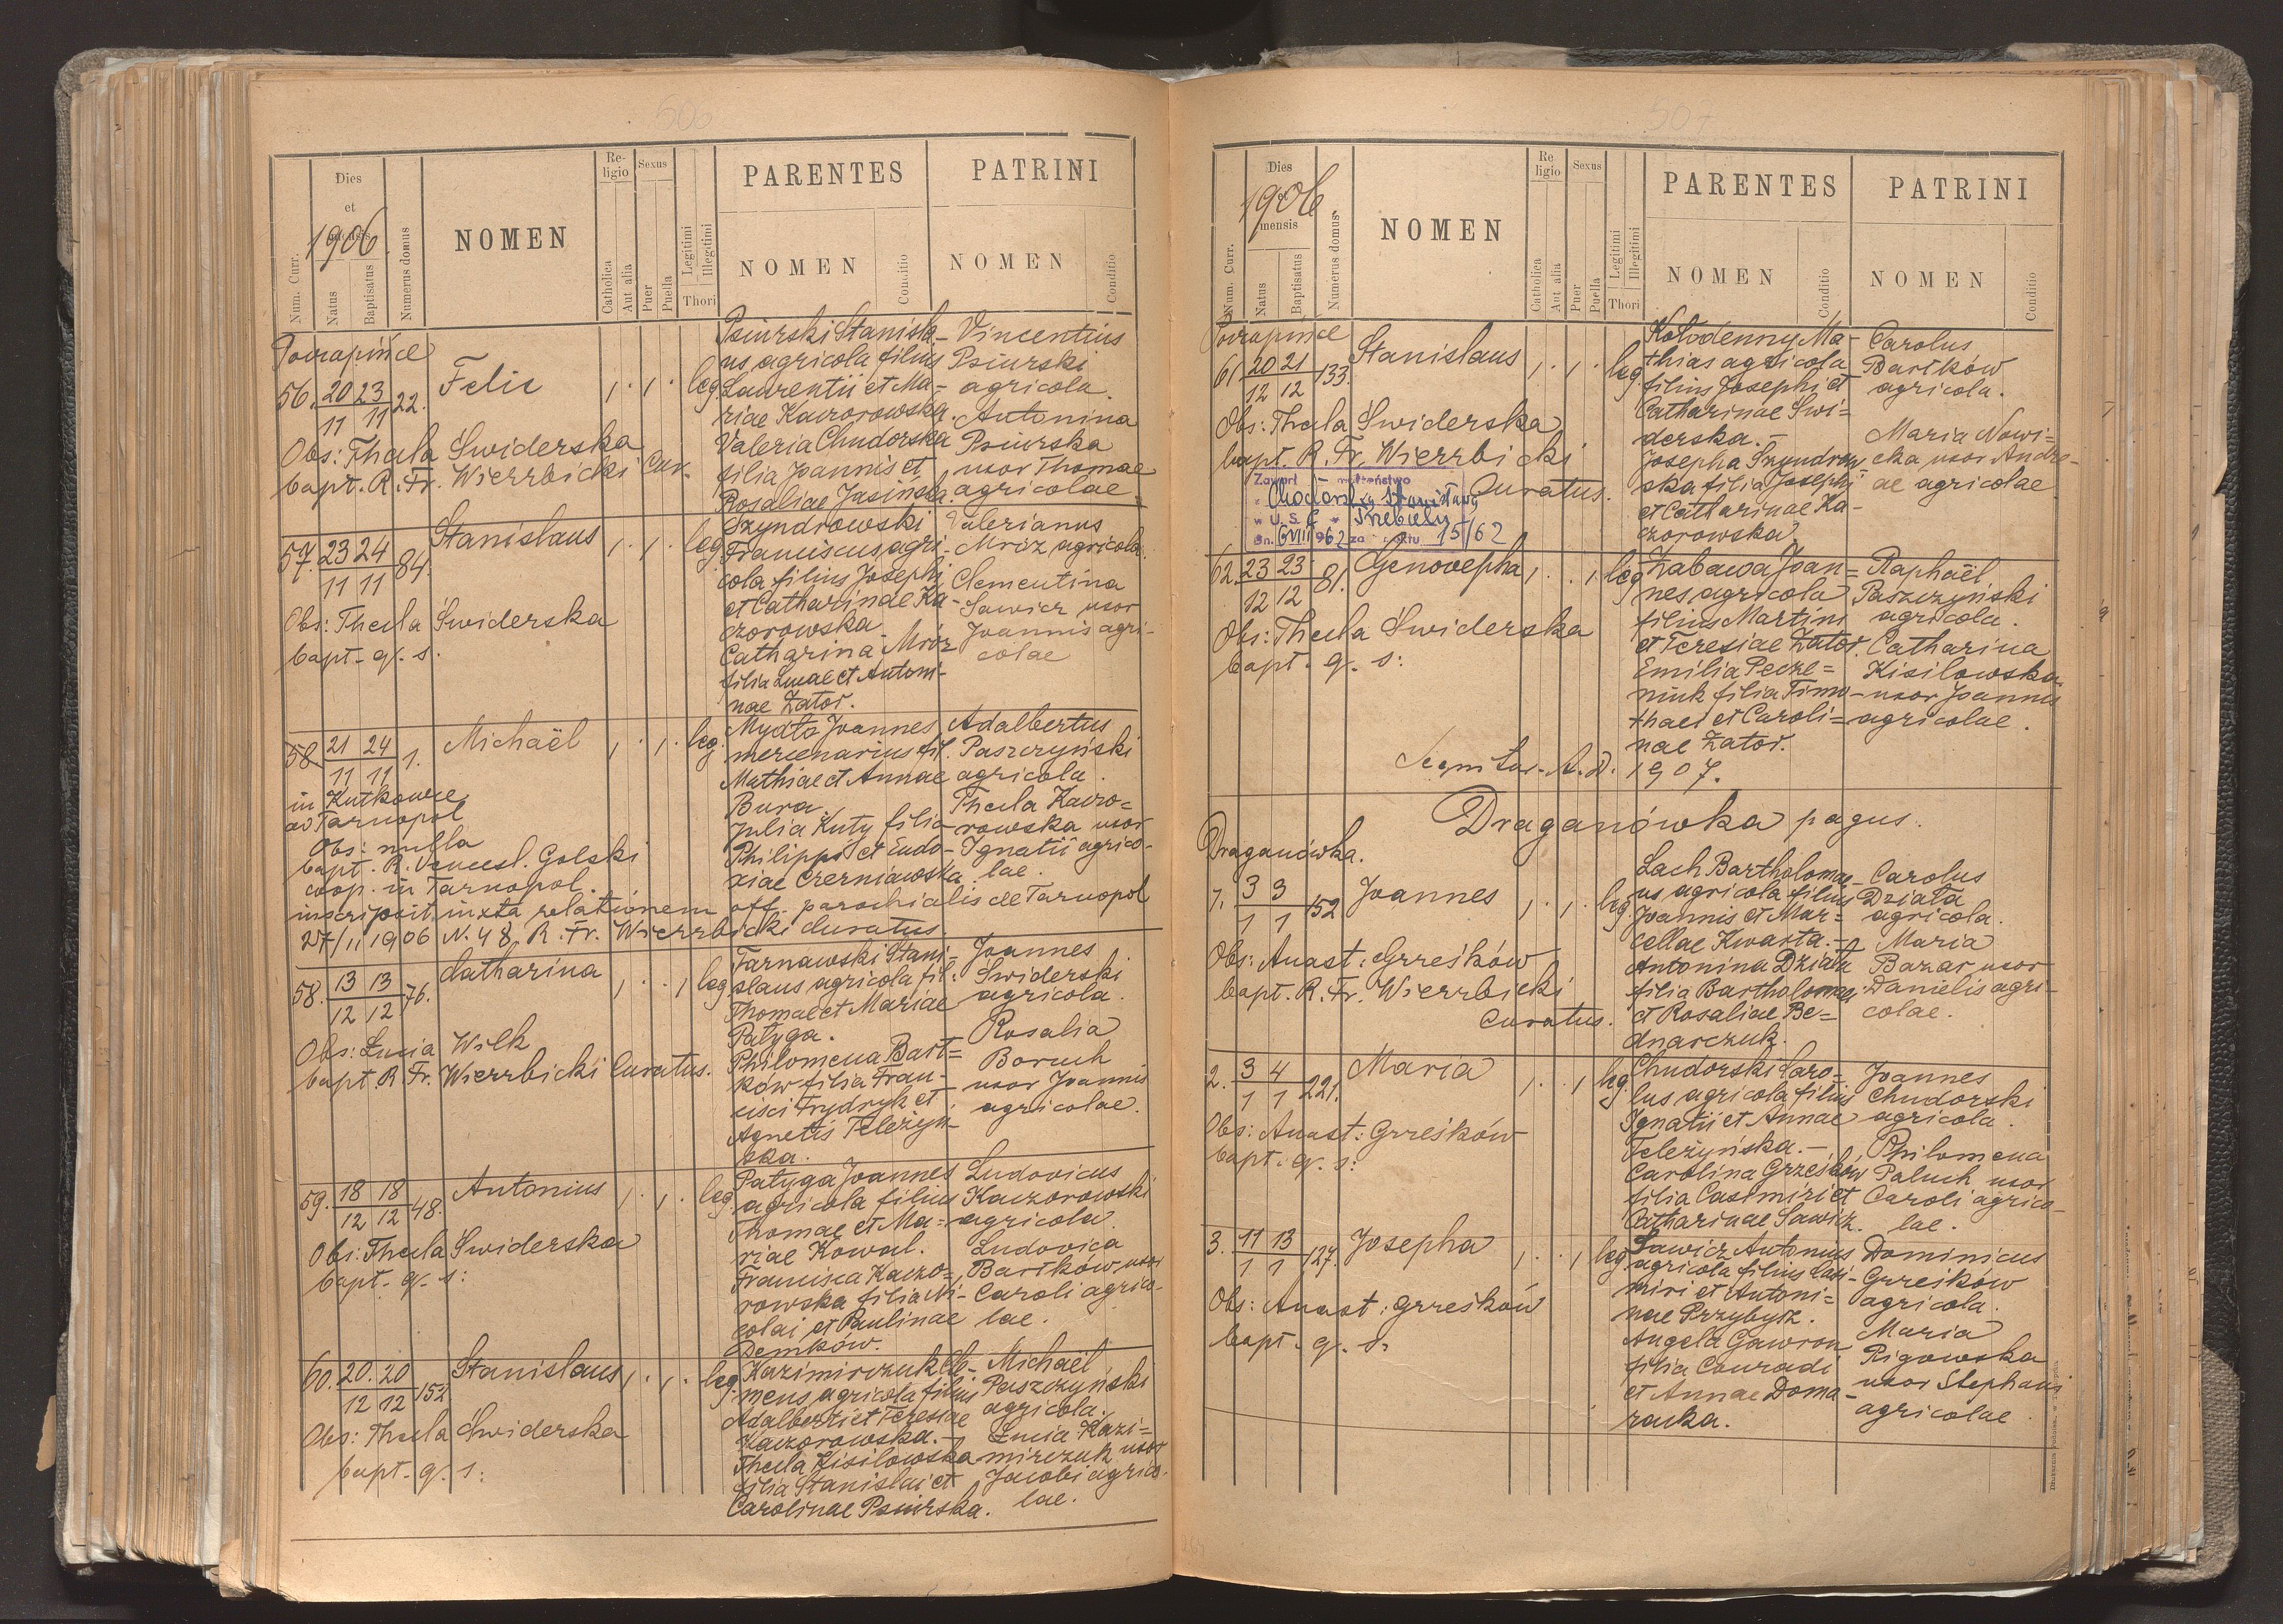 506
Num. Curr.
Dies
et
mensis
1906
Natus
Baptisatus
Numerus domus
NOMEN
Re-
ligio
Catholica
Aut alia
Sexus
Puer
Puella
Legitimi
Illegitimi
Thori
PARENTES
NOMEN
Conditio
PATRINI
NOMEN
Conditio
56. 20 23 22. Felic 1 . 1 . leg.
11 11
Obs: Thecla Świderska
bapt. R. Fr. Wierzbicki Cur.
Psiurski Stanisla-
us agricola filius
Laurentii et Ma-
riae Kaczorowska.
Valeria Chudorska
filia Joannis et
Rosaliae Jasińska.
Vincentius
Psiurski
agricola.
Antonina
Psiurska
uxor Thomae
agricolae.
57. 23 24 84. Stanislaus 1 . 1 . leg.
11 11
Obs: Thecla Świderska
bapt. q. s.
Szyndrowski
Franciscus agri-
cola filius Josephi
et Catharinae Ka-
czorowska.
Catharina Mróz
filia Lucae et Antoni-
nae Zator.
Valerianus
Mróz agricola.
Clementina
Sawicz uxor
Joannis agri-
colae
58. 21 24 1. Michaël 1 . 1 . leg.
11 11
in Kutkowce
ad Tarnopol
Obs: nulla
bapt. R. Vencesl. Golski
coop. in Tarnopol.
inscripsit iuxta relationem off. parochialis de Tarnopol
27/11 1906 N. 48, R. Fr. Wierzbicki Curatus.
Mydło Joannes
mercenarius fil.
Mathiae et Annae
Bura.
Julia Kuty filia
Philippi et Eudo-
xiae Czerniawska.
Adalbertus
Paszczyński
agricola.
Thecla Kaczo=
rowska uxor
Ignatii agrico-
lae.
58. 13 13 76. Catharina 1 . . 1 leg.
12 12
Obs: Lucia Wilk
bapt. R. Fr. Wierzbicki Curatus.
Tarnawski Stani=
slaus agricola fil.
Thomae et Mariae
Patyga.
Philomena Bart=
ków filia Fran-
cisci Frydryk et
Agnetis Teleżyń-
ska.
Joannes
Świderski
agricola.
Rosalia
Boruch
uxor Joannis
agricolae.
59. 18 18 48. Antonius 1 . 1 . leg.
12 12
Obs: Thecla Świderska
bapt. q. s:
Patyga Joannes
agricola filius
Thomae et Ma=
riae Kowal.
Francisca Kaczo=
rowska filia Ni-
colai et Paulinae
Demków.
Ludovicus
Kaczorowski
agricola.
Ludovica
Bartków uxor
Caroli agrico-
lae.
60. 20. 20 152 Stanislaus 1 . 1 . leg.
12 12
Obs: Thecla Świderska
bapt. q. s:
Kazimirczuk Cle-
mens agricola filius
Adalberti et Teresiae
Kaczorowska.-
Thecla Kisilowska
filia Stanislai et
Carolinae Psiurska.
Michaël
Paszczyński
agricola.
Lucia Kazi=
mirczuk uxor
Jacobi agrico-
lae.
507
Num. Curr.
Dies
et
mensis
1906
Natus
Baptisatus
Numerus domus
NOMEN
Re
ligio
Catholica
Aut alia
Sexus
Puer
Puella
Legitimi
Illegitimi
Thori
PARENTES
NOMEN
Conditio
PATRINI
NOMEN
Conditio
61 20 21 133. Stanislaus 1 . 1 . leg.
12 12
Obs: Thecla Świderska
bapt. R. Fr. Wierzbicki
Curatus.
Zawarł małżeństwo
w U.S.C. w Trzebielu
Dn. 6 VIII 1962 za aktu 15/62
Kołodenny Ma-
thias agricola
filius Josephi et
Catharinae Świ=
derska.-
Josepha Szyndrow-
ska filia Josephi
et Catharinae Ka-
czorowska.
Carolus
Bartków
agricola.
Maria Nowi=
cka uxor Andre-
ae agricolae
62. 23 23 81. Genovepha 1 . . 1 leg.
12 12
Obs: Thecla Świderska
bapt. q. s:
Zabawa Joan=
nes agricola
filius Martini
et Teresiae Zator.
Emilia Pecze=
niuk filia Timo-
thaei et Caroli=
nae Zator.
Raphaël
Paszczyński
agricola.
Catharina
Kisilowska
uxor Joannis
agricolae.
Sequitur A. D. 1907.
Draganówka pagus.
Draganówka.
1. 3 3 152 Joannes 1 . 1 . leg.
1 1
Obs: Anast: Grześków
bapt. R. Fr. Wierzbicki
Curatus.
Lach Bartholomae-
us agricola filius
Joannis et Mar=
cellae Kwarta.-
Antonina Działa
filia Bartholomaei
et Rosaliae Be=
dnarczuk.
Carolus
Działa
agricola.
Maria
Bazar uxor
Danielis agri-
colae.
2. 3 4 221. Maria 1 . . 1 leg.
1 1
Obs: Anast: Grześków
bapt. q. s:
Chudorski Caro=
lus agricola filius
Ignatii et Annae
Teleżyńska.-
Carolina Grześków
filia Casimiri et
Catharinae Sawicz.
Joannes
Chudorski
agricola.
Philomena
Paluch uxor
Caroli agrico-
lae.
3. 11 13 127. Josepha 1 . . 1 leg.
1 1
Obs: Anast: Grześków
bapt. q. s.
Sawicz Antonius
agricola filius Casi-
miri et Antoni=
nae Przybysz.
Angela Gawron
filia Conradi
et Annae Doma-
racka.
Dominicus
Grześków
agricola.
Maria
Rigowska
uxor Stephani
agricolae